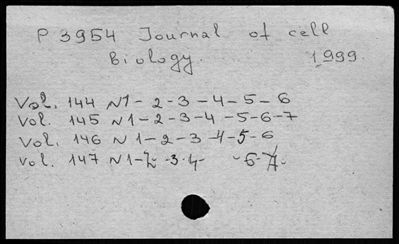 P 3954 Journal of cell
Biology. 1999.
Vol. 144 N1-2-3-4-5-6
Vol. 145 N1-2-3-4-5-6-7
Vol. 146 N1-2-3-4-5-6
Vol. 147 N1-2-3-4- -6-7-